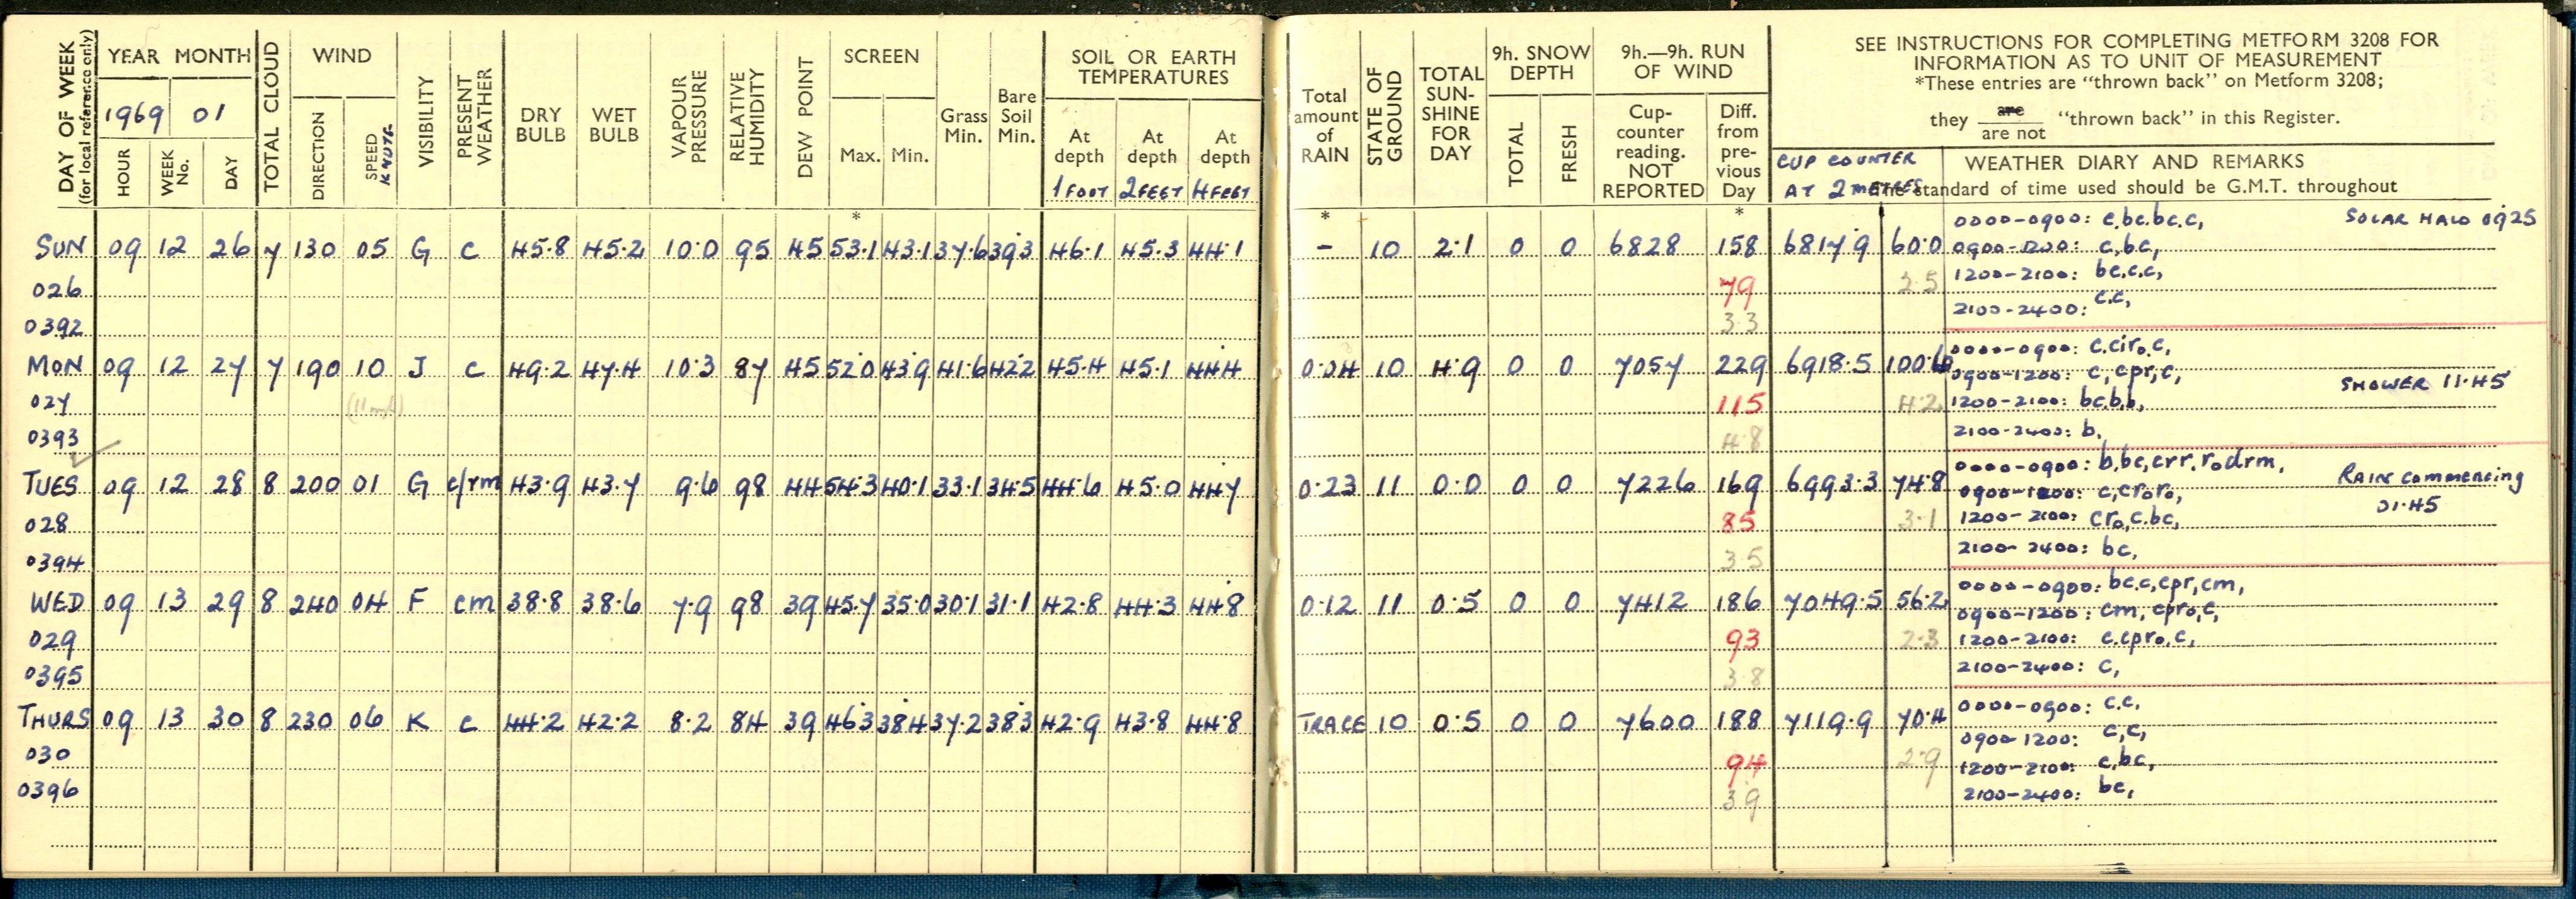 DAY OF WEEK
(for local reference only)
YEAR MONTH
1969 01
HOUR WEEK No. DAY
TOTAL CLOUD
WIND
DIRECTION SPEED KNOTS
VISIBILITY
PRESENT WEATHER
DRY BULB
WET BULB
VAPOUR PRESSURE
RELATIVE HUMIDITY
DEW POINT
SCREEN
Max. Min.
Grass Min.
Bare Soil Min.
SOIL OR EARTH TEMPERATURES
At depth 1 FOOT
At depth 2 FEET
At depth 4 FEET
Total amount of RAIN
STATE OF GROUND
TOTAL SUN-SHINE FOR DAY
9h. SNOW DEPTH
TOTAL FRESH
9h.—9h. RUN OF WIND
Cup-counter reading. NOT REPORTED
Diff. from pre-vious Day
SEE INSTRUCTIONS FOR COMPLETING METFORM 3208 FOR
INFORMATION AS TO UNIT OF MEASUREMENT
*These entries are “thrown back” on Metform 3208;
they are / are not “thrown back” in this Register.
CUP COUNTER
AT 2 METRES
WEATHER DIARY AND REMARKS
The standard of time used should be G.M.T. throughout
* * *
SUN 09 12 26 7 130 05 G c 45.8 45.2 10.0 95 45 53.1 43.1 37.6 39.3 46.1 45.3 44.1 – 10 2.1 0 0 6828 158 6817.9 60.0
0000-0900: c.bc.bc.c, SOLAR HALO 0925
0900-1200: c,bc,
026 79 2.5 1200-2100: bc.c.c,
0392 3.3 2100-2400: c.c,
MON 09 12 27 7 190 10 J c 49.2 47.4 10.3 87 45 52.0 43.9 41.6 42.2 45.4 45.1 44.4 0.04 10 4.9 0 0 7057 229 6918.5 100.6
0000-0900: c.ciro.c,
0900-1200: c, cpr,c, SHOWER 11.45
027 (11 mph) 115 4.2 1200-2100: bc,b.b,
0393 4.8 2100-2400: b,
TUES 09 12 28 8 200 01 G c/rm 43.9 43.7 9.6 98 44 54.3 40.1 33.1 34.5 44.6 45.0 44.7 0.23 11 0.0 0 0 7226 169 6993.3 74.8
0000-0900: b,bc,crr.rodrm, RAIN commencing
0900-1200: c,croro, 01.45
028 85 3.1 1200-2100: cro,c.bc,
0394 3.5 2100-2400: bc,
WED 09 13 29 8 240 04 F cm 38.8 38.6 7.9 98 39 45.7 35.0 30.1 31.1 42.8 44.3 44.8 0.12 11 0.5 0 0 7412 186 7049.5 56.2
0000-0900: bc.c,cpr,cm,
0900-1200: cm, cpro,c,
029 93 2.3 1200-2100: c.cpro.c,
0395 3.8 2100-2400: c,
THURS 09 13 30 8 230 06 K c 44.2 42.2 8.2 84 39 46.3 38.4 37.2 38.3 42.9 43.8 44.8 TRACE 10 0.5 0 0 7600 188 7119.9 70.4
0000-0900: c.c,
0900-1200: c,c,
030 94 2.9 1200-2100: c,bc,
0396 3.9 2100-2400: bc,